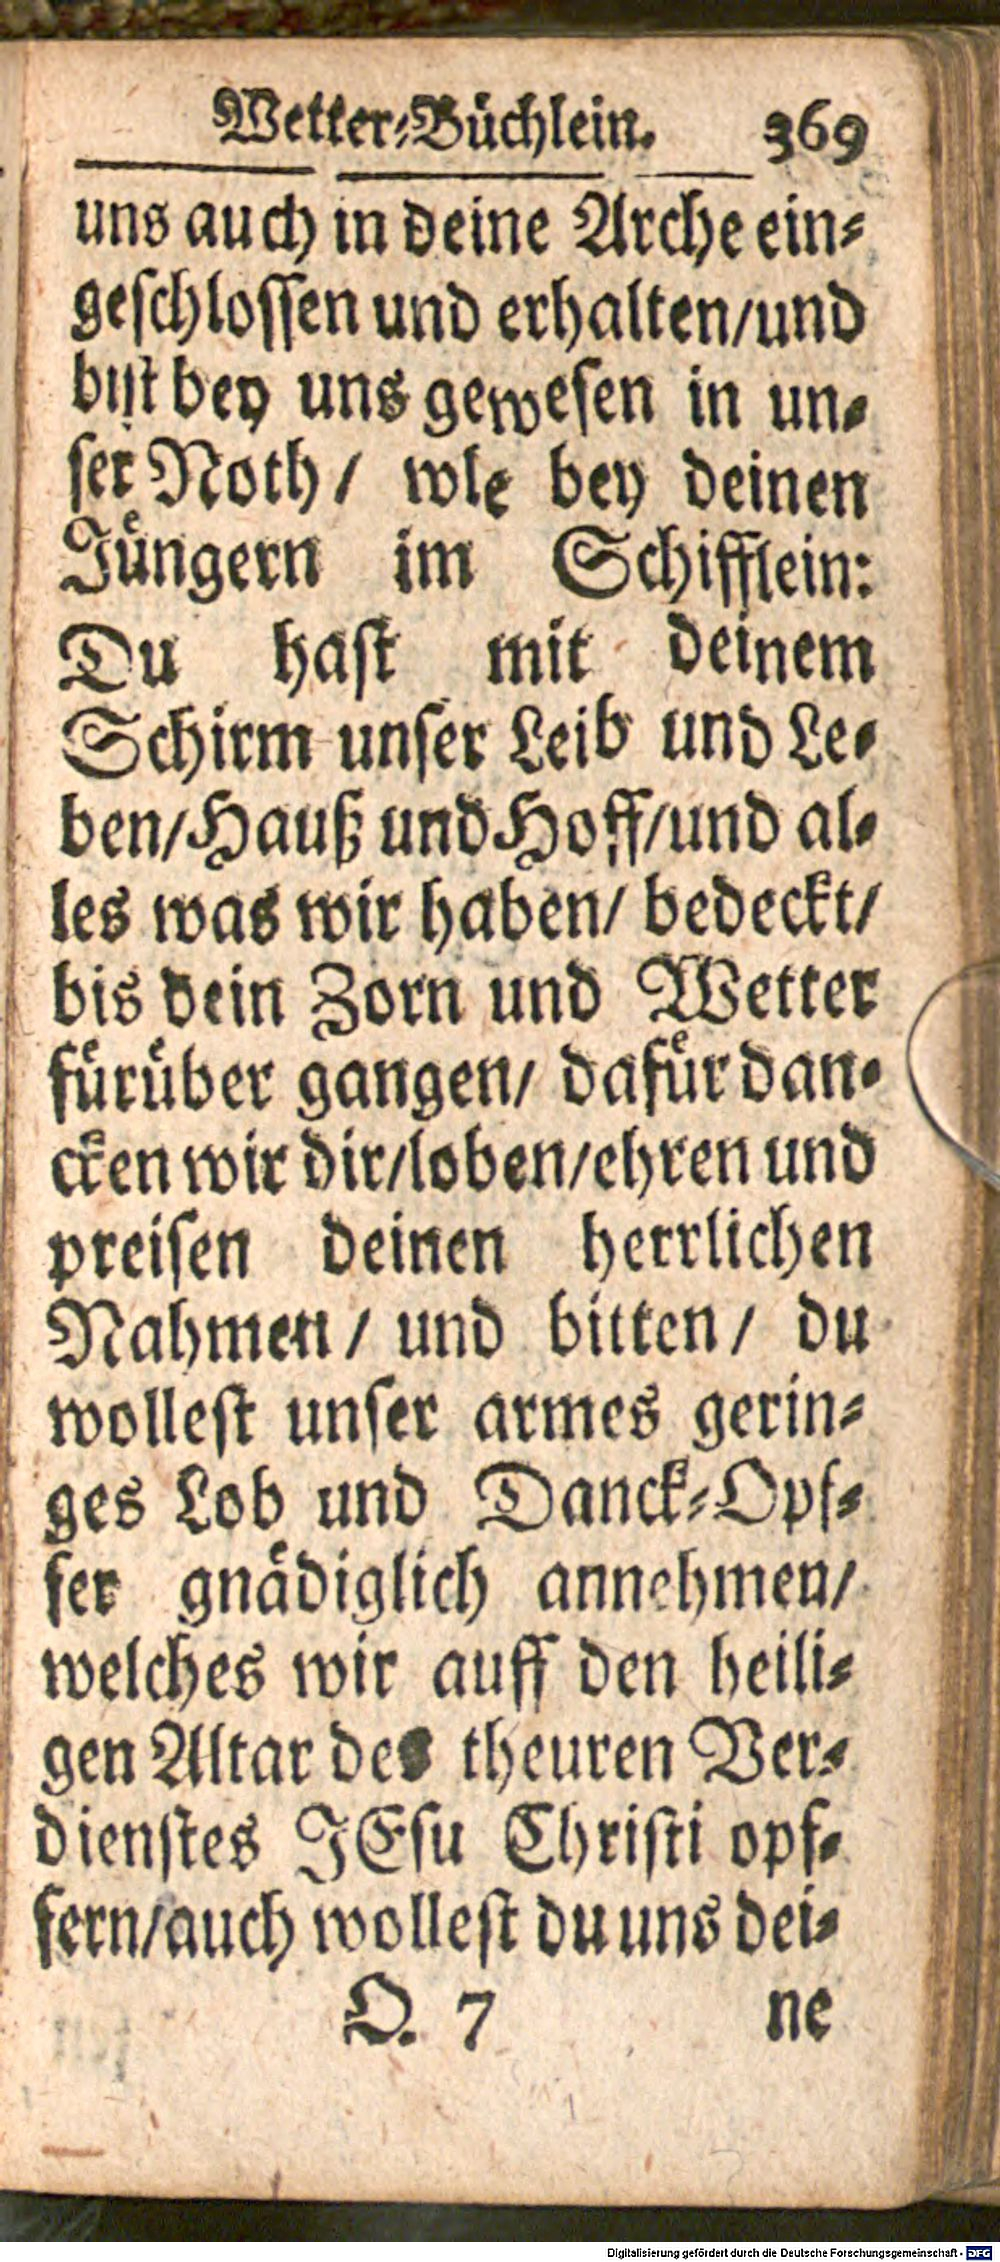 Wetter-Büchlein. 369
uns auch in deine Arche ein-
geschlossen und erhalten/und
bist bey uns gewesen in un-
ser Noth/ wie bey deinen
Jüngern im Schifflein:
Du hast mit deinem
Schirm unser Leib und Le-
ben/Hauß und Hoff/und al-
les was wir haben/ bedeckt/
bis dein Zorn und Wetter
fürüber gangen/ dafür dan-
cken wir dir/loben/ehren und
preisen deinen herrlichen
Nahmen/ und bitten/ du
wollest unser armes gerin-
ges Lob und Danck-Opf-
fer gnädiglich annehmen/
welches wir auff den heili-
gen Altar des theuren Ver-
dienstes JEsu Christi opf-
fern/auch wollest du uns dei-
O. 7 ne
Digitalisierung gefördert durch die Deutsche Forschungsgemeinschaft - DFG